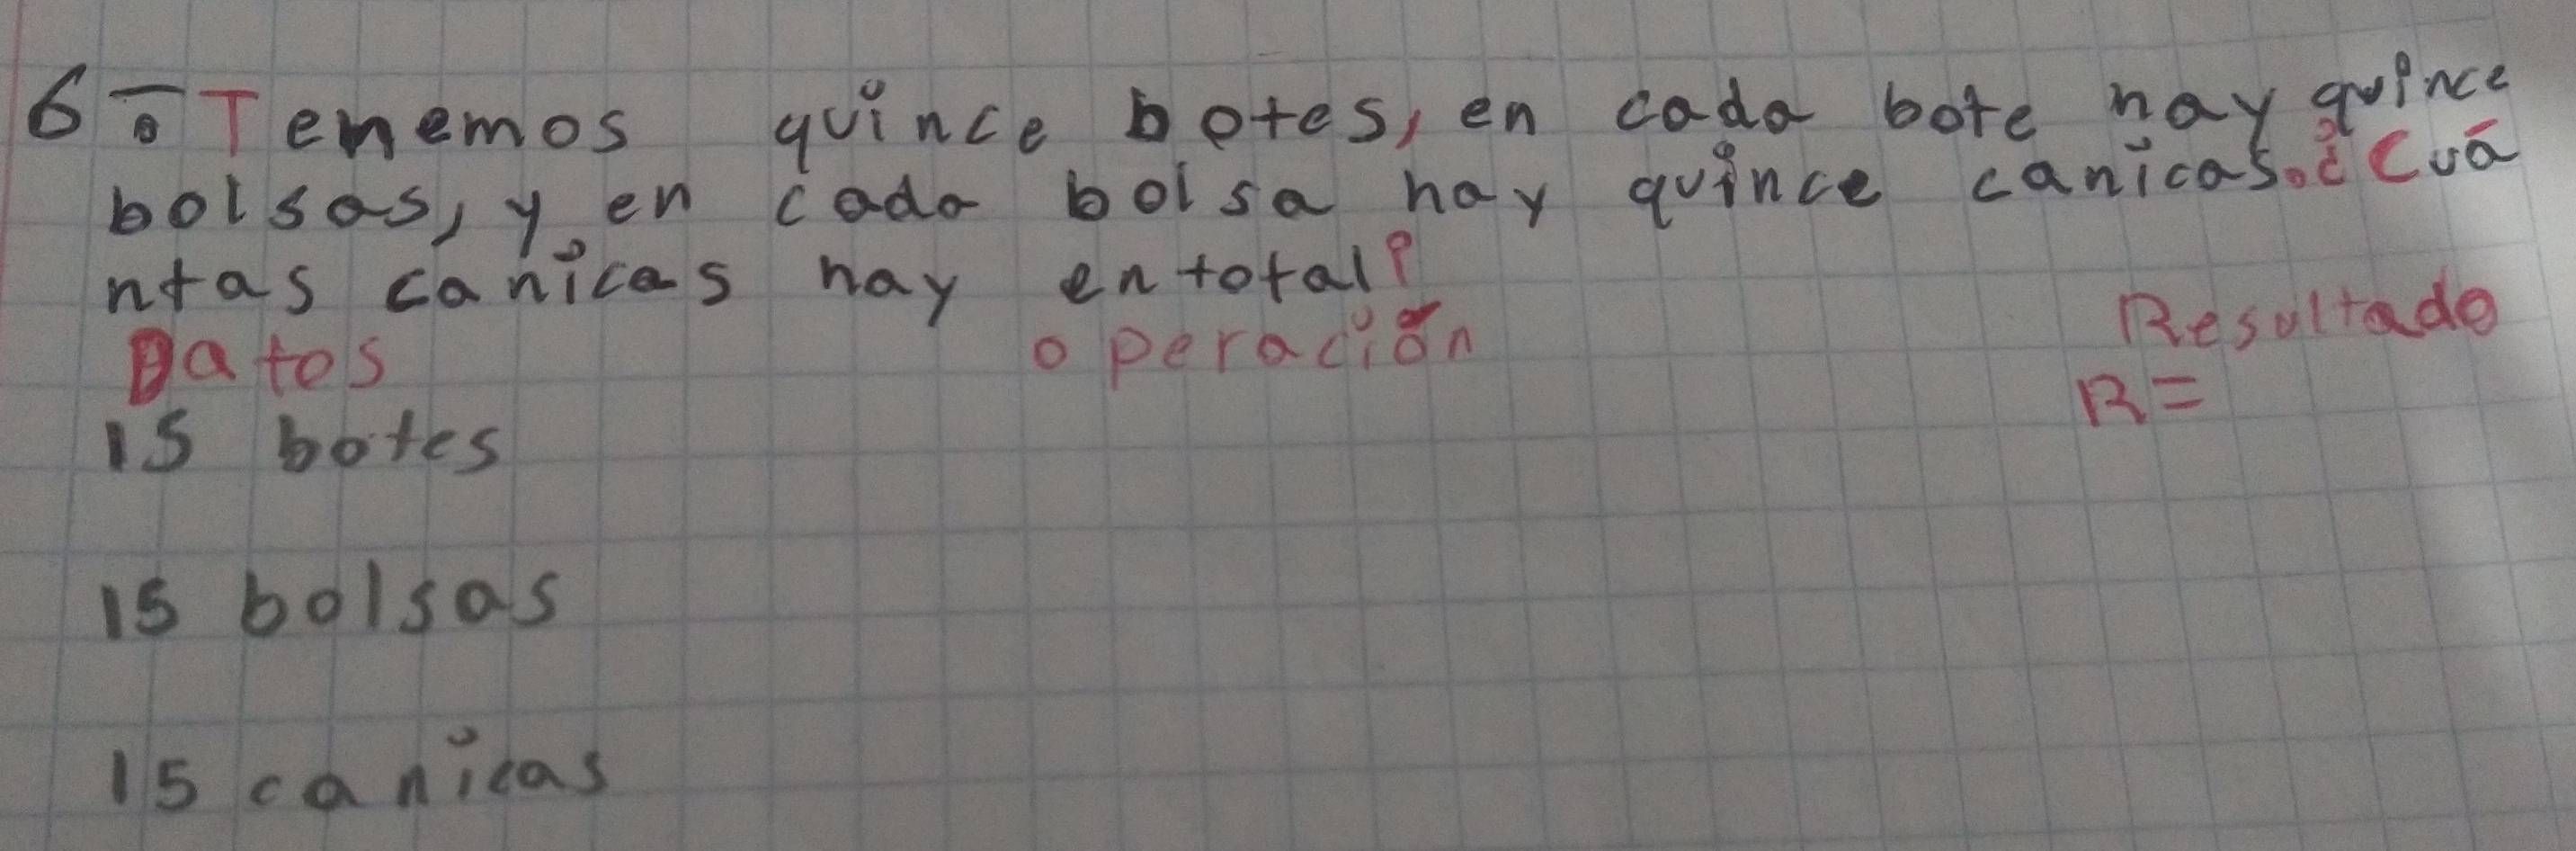 6.- Tenemos quince botes, en cada bote hay quince
bolsas, y en cada bolsa hay quince canicas. ¿Cuá
ntas canicas hay en total?
Datos operación Resultado
R=
15 botes
15 bolsas
15 canicas